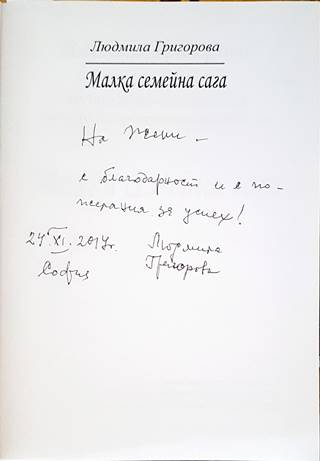 Людмила Григорова
Малка семейна сага
На Жени –
с благодарност и с по-
желания за успех!
24.XI.2017г. Людмила
София Григорова